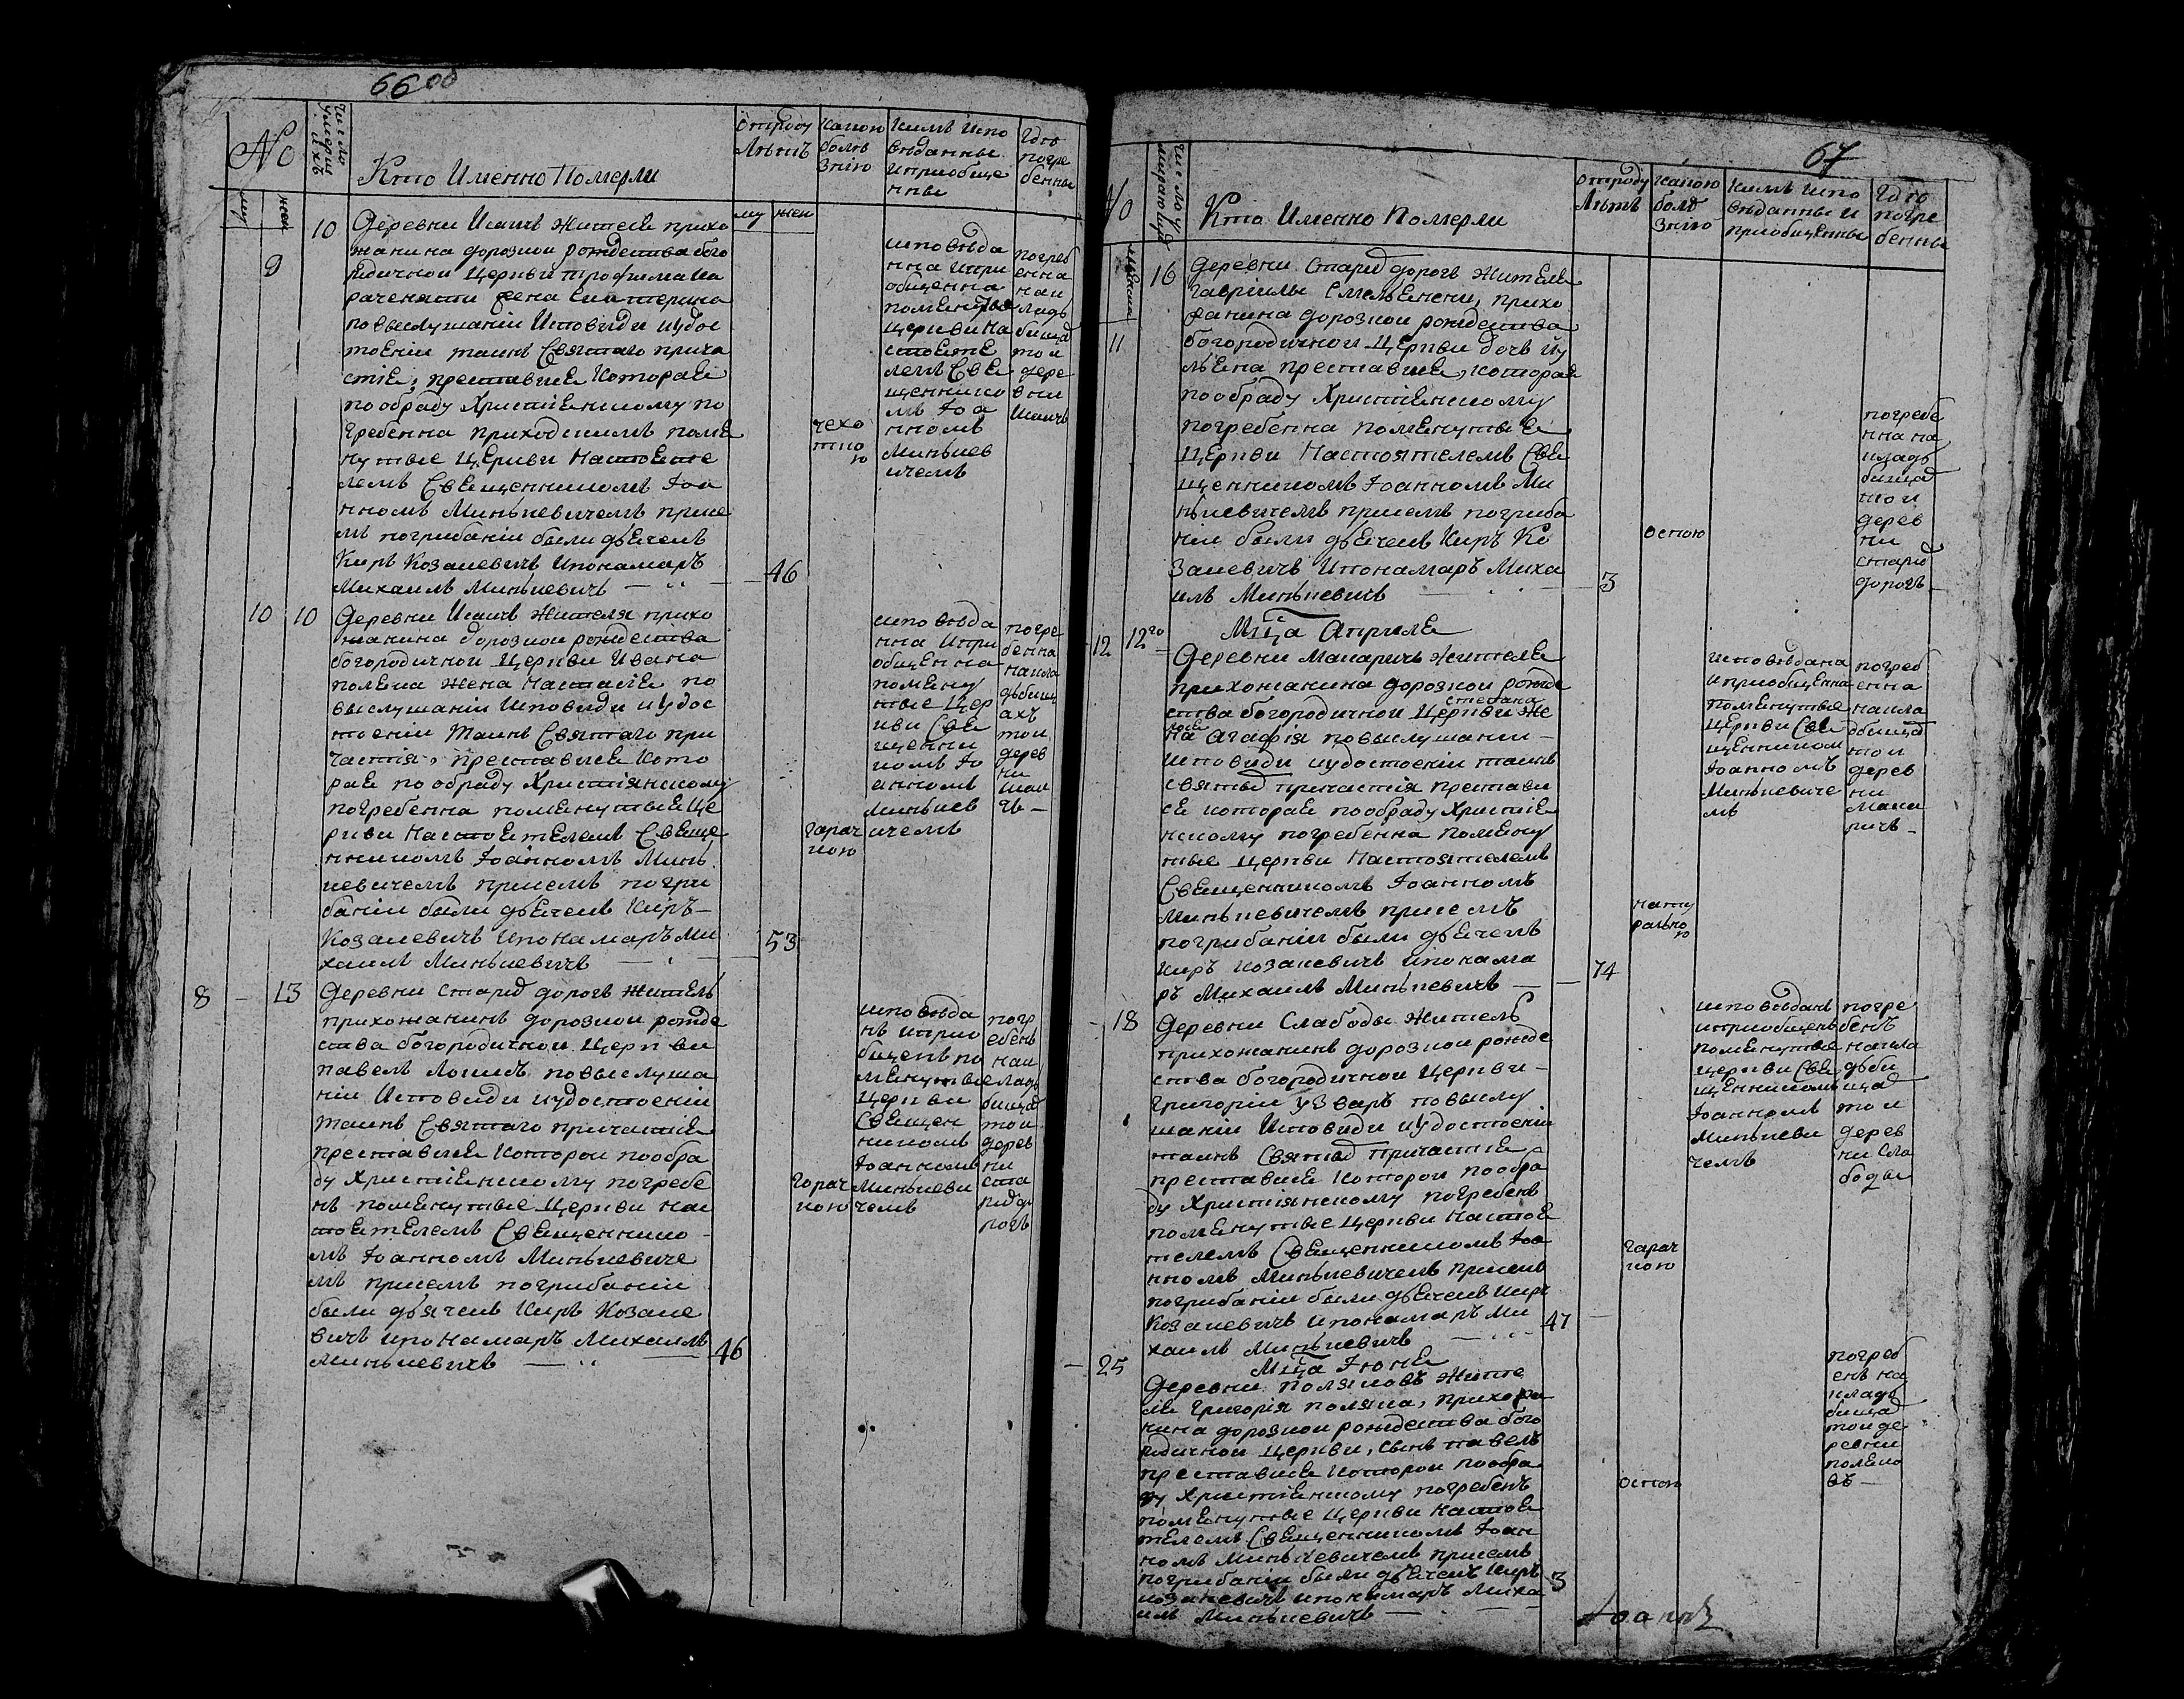 66 об
№
число умерших
Кто Именно Померли
Отроду Лѣтъ
Какою болѣзнію
Кимъ Исповѣданны и приобщенны
Гдѣ погребенны
му
жен
му жен
9
10
Деревни Исаичъ Жителе прихо
жанина дорозкои рождества бого
родичнои Церкви трофима ка
жена Екатерина
по выслушаніи Исповиди и удос
тоеніи таинъ Святаго прича
стіе, преставися Котораѣ
по обраду Христіенскому по
гребенна приходскимъ поме
нутые Церкви Настоете
лемъ Священникомъ Іоа
нномъ Минькевичемъ прие
мъ погрибаніи были дьечекъ
Киръ Козакевичъ Ипонамаръ
Михаилъ Минькевичъ
46
чехо
тко
ю
исповѣда
нна и при
общенна
поменутые
церкви на
стоете
лемъ Све
щеннико
мъ Іоа
нномъ
Минькев
ичемъ
погреб
енна
на к
ладь
бищах
то и
дере
вни
Исаичъ
10
10
Деревни Исаичъ Жителя прихо
жанина дорозкои рождества
богородичнои Церкви Ивана
полека жена Настасіе по
выслушаніи Исповиди и Удос
тоеніи таинъ Святаго при
частія, преставися Кото
рае по обраду Христіянскому
погребенна поменутые Це
ркви Настоетелемъ Свеще
нникомъ Іоанномъ Минь
кевичемъ приемъ погри
баніи были дьечекъ Киръ
Козакевичъ Ипонамаръ Ми
хаилъ Минькевичъ
53
гарач
кою
исповѣда
нна и при
общенна
помену
тые Цер
кви Све
щенни
комъ Іо
анномъ
Минькев
ичемъ
погре
бенна
на кла
дьбищ
ахъ
тои
дерев
ни
Исаи
чъ
8
13
Деревни старых дорогъ житель
прихожанинъ дорозкои рожде
ства богородичнои Церкви
павелъ по выслуша
ніи Исповиди и удостоеніи
таинъ Святаго причастіе
преставися Которои по обра
ду Христіенскому погребе
нъ поменутые Церкви нас
тоетелемъ Священнико
мъ Іоанномъ Минькевиче
мъ приемъ погрибаніи
были дьячекъ Киръ Козаке
вичъ ипонамаръ Михаилъ
Минькевичъ
46
горач
кою
исповѣда
нъ и прио
бщенъ по
менутые
Церкви
Священ
никомъ
Іоанномъ
Минькеви
чемъ
погр
ебенъ
на к
ладь
бищах
тои
дерев
ни
ста
рих до
рогъ
67
№
Кто Именно Померли
Отроду Лѣтъ
Какою болѣзнію
Кимъ Исповѣданны и приобщенны
Гдѣ погребенны
11
16
Деревни Старих дорогъ Жителе
Гавріилы Емельенски, прихо
жанина дорозкои рождества
богородичнои Церкви дочь Иу
льена преставися, котораѣ
по обраду Христіенскому
погребенна поменутые
Церкви Настоятелемъ Све
щенникомъ Іоанномъ Ми
нькевичемъ приемъ погриба
ніи были дьечекъ Киръ Ко
закевичъ Ипонамаръ Миха
илъ Минькевичъ
3
оспою
погребе
нна на
кладь
бищах
тои
дерев
ни
старих
дорогъ
Мца Апрыле
12
12го
Деревни Макаричъ Жителе
прихожанина дорозкои рожде
ства богородичнои Церкви степана же
на Агафія по выслушании
исповиди и удостоеніи таинъ
святых причастія престави
се котораѣ по обраду Христіе
нскому погребенна помену
тые Церкви Настоятелемъ
Священникомъ Іоанномъ
Минькевичемъ приемъ
погрибаніи были дьечекъ
Киръ Козакевичъ ипонама
ръ Михаилъ Минькевичъ
74
нату
рально
ю
исповѣдана
и приобщенна
поменутые
церкви Све
щенником
Іоанномъ
Минькевиче
мъ
погреб
енна
на кла
дбищах
тои
дерев
ни
Мака
ричъ
18
Деревни Слабоды Житель
прихожанинъ дорозкои рожде
ства богородичнои Церкви
Григории Узваръ по выслу
шаніи Исповиди и Удостоеніи
таинъ Святых Причастіе
преставися Которои по обра
ду Христіянскому погребенъ
поменутые Церкви Настое
телемъ Священникомъ Іоа
нномъ Минькевичемъ приемъ
погрибаніи были дьечекъ Киръ
Козакевичъ Ипонамаръ Ми
хаилъ Минькевичъ
47
гарач
кою
исповѣданъ
и приобщенъ
поменутые
церкви Све
щенникомъ
Іоанномъ
Минькеви
чемъ
погре
бенъ
на кла
дьби
щах
тои
дерев
ни Сла
боды
Мца Іюне
25
Деревни Поляковъ Жите
ле Григорія поляка, прихожа
нина дорозкои рождества бого
родичнои Церкви, сынъ павелъ
преставися Которои по обра
ду Христіенскому погребенъ
поменутые Церкви Настое
телемъ Священникомъ Іоан
номъ Минькевичемъ приемъ
погрибаніи были дьечекъ Киръ
Козакевичъ ипонамаръ Миха
илъ Минькевичъ
3
оспою
погреб
енъ на
кладь
бищах
тои де
ревни
полеко
въ
Іоаннъ